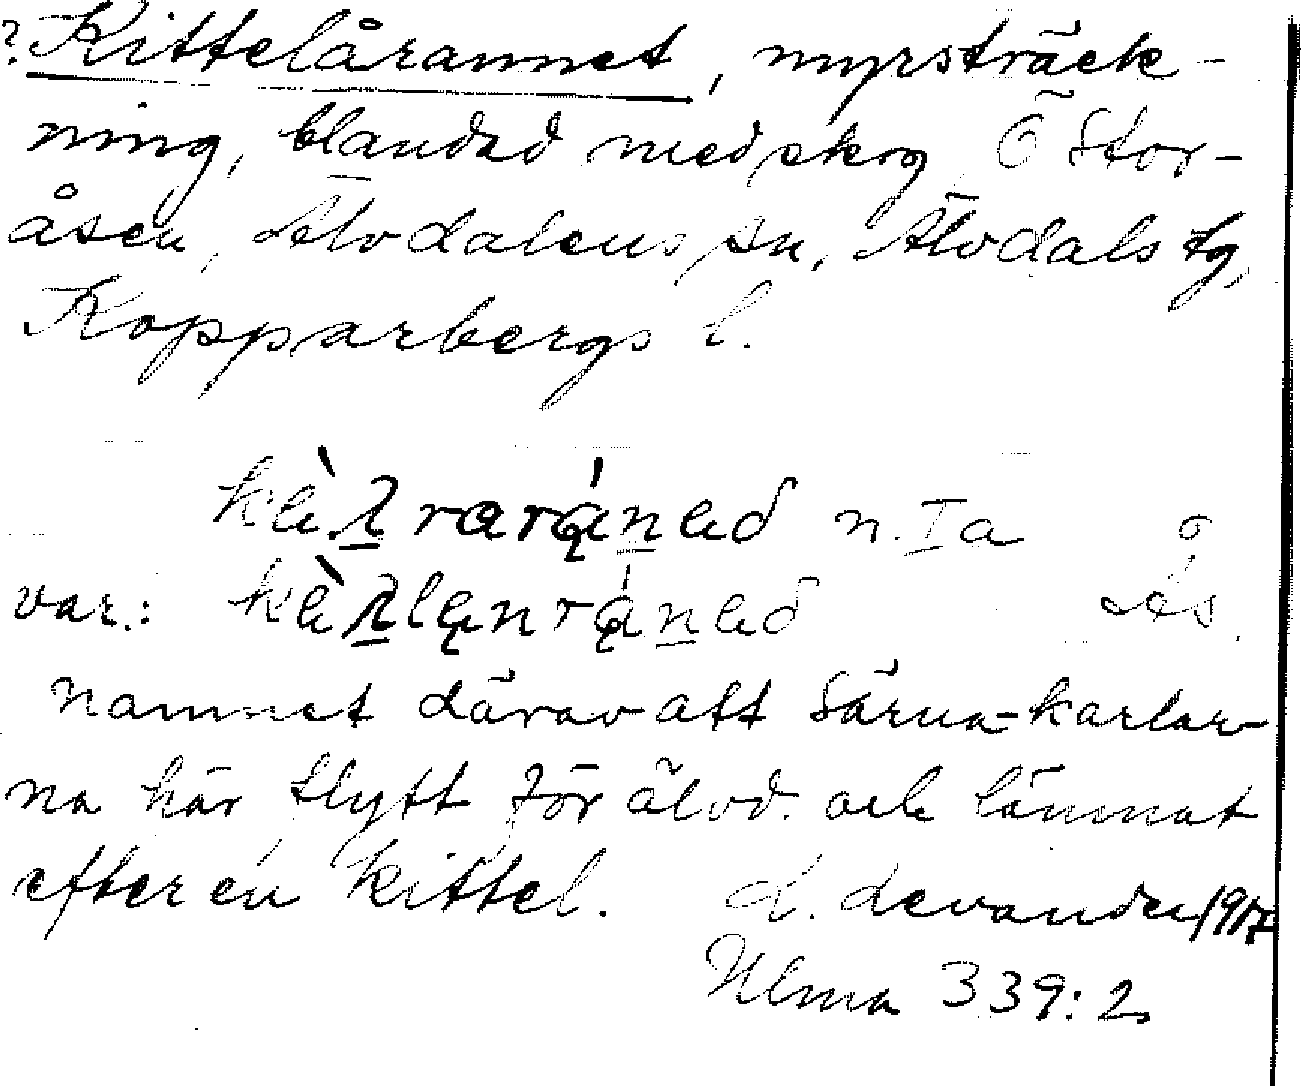 ? Kittelårannet, myrsträck-
ning, blandad med skog Ö Stor-
åsen, Älvdalens sn, Älvdals tg,
Kopparbergs l.
n. Ia
var.:
namnet därav att Särna-karlar-
na här flytt för älvd. och lämnat
efter en kittel. L. Levander 1917
Ulma 339:2